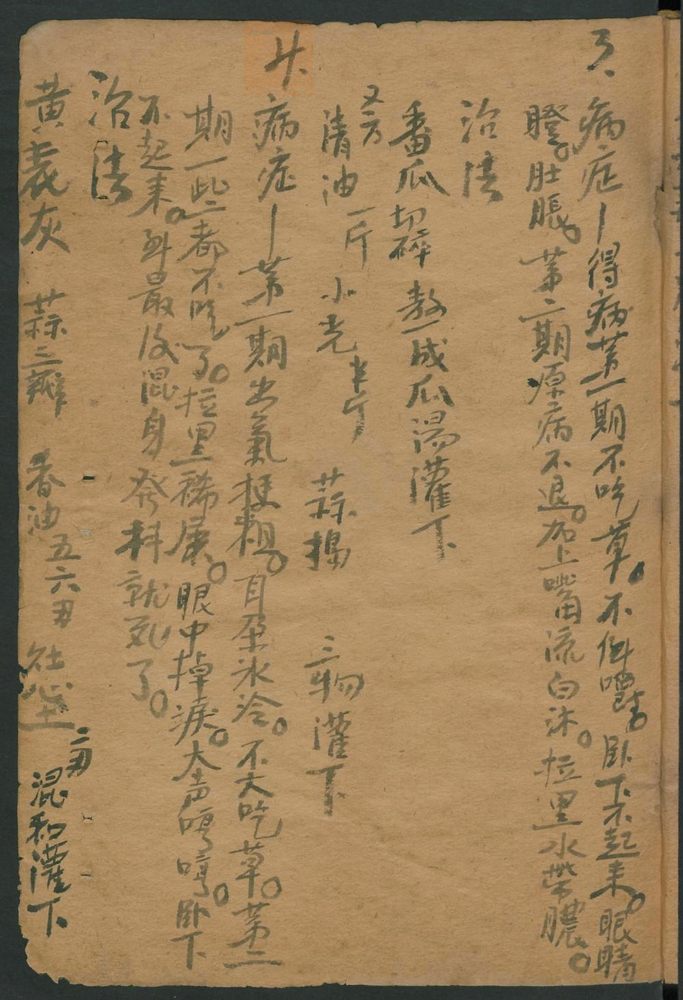 3、病症—得病第一期不吃草。不倒嚼。卧下不起来。眼睛
瞪。肚脹。第二期原病不退。加上嘴流白沫。拉黑水帶膿。
治法
番瓜切碎熬成瓜湯灌下
又方
清油一斤 小 半斤 蒜搗 三物灌下
4、病症—第一期出氣梗粗。耳朵冰冷。不大吃草。第二
期一些都不吃了。拉黑稀屎。眼中掉淚。大声哼哼。卧下
不起来。到最後混身發抖就死了。
治法
黄表灰 蒜三瓣 香油五六刄 灶心土二刄 混和灌下